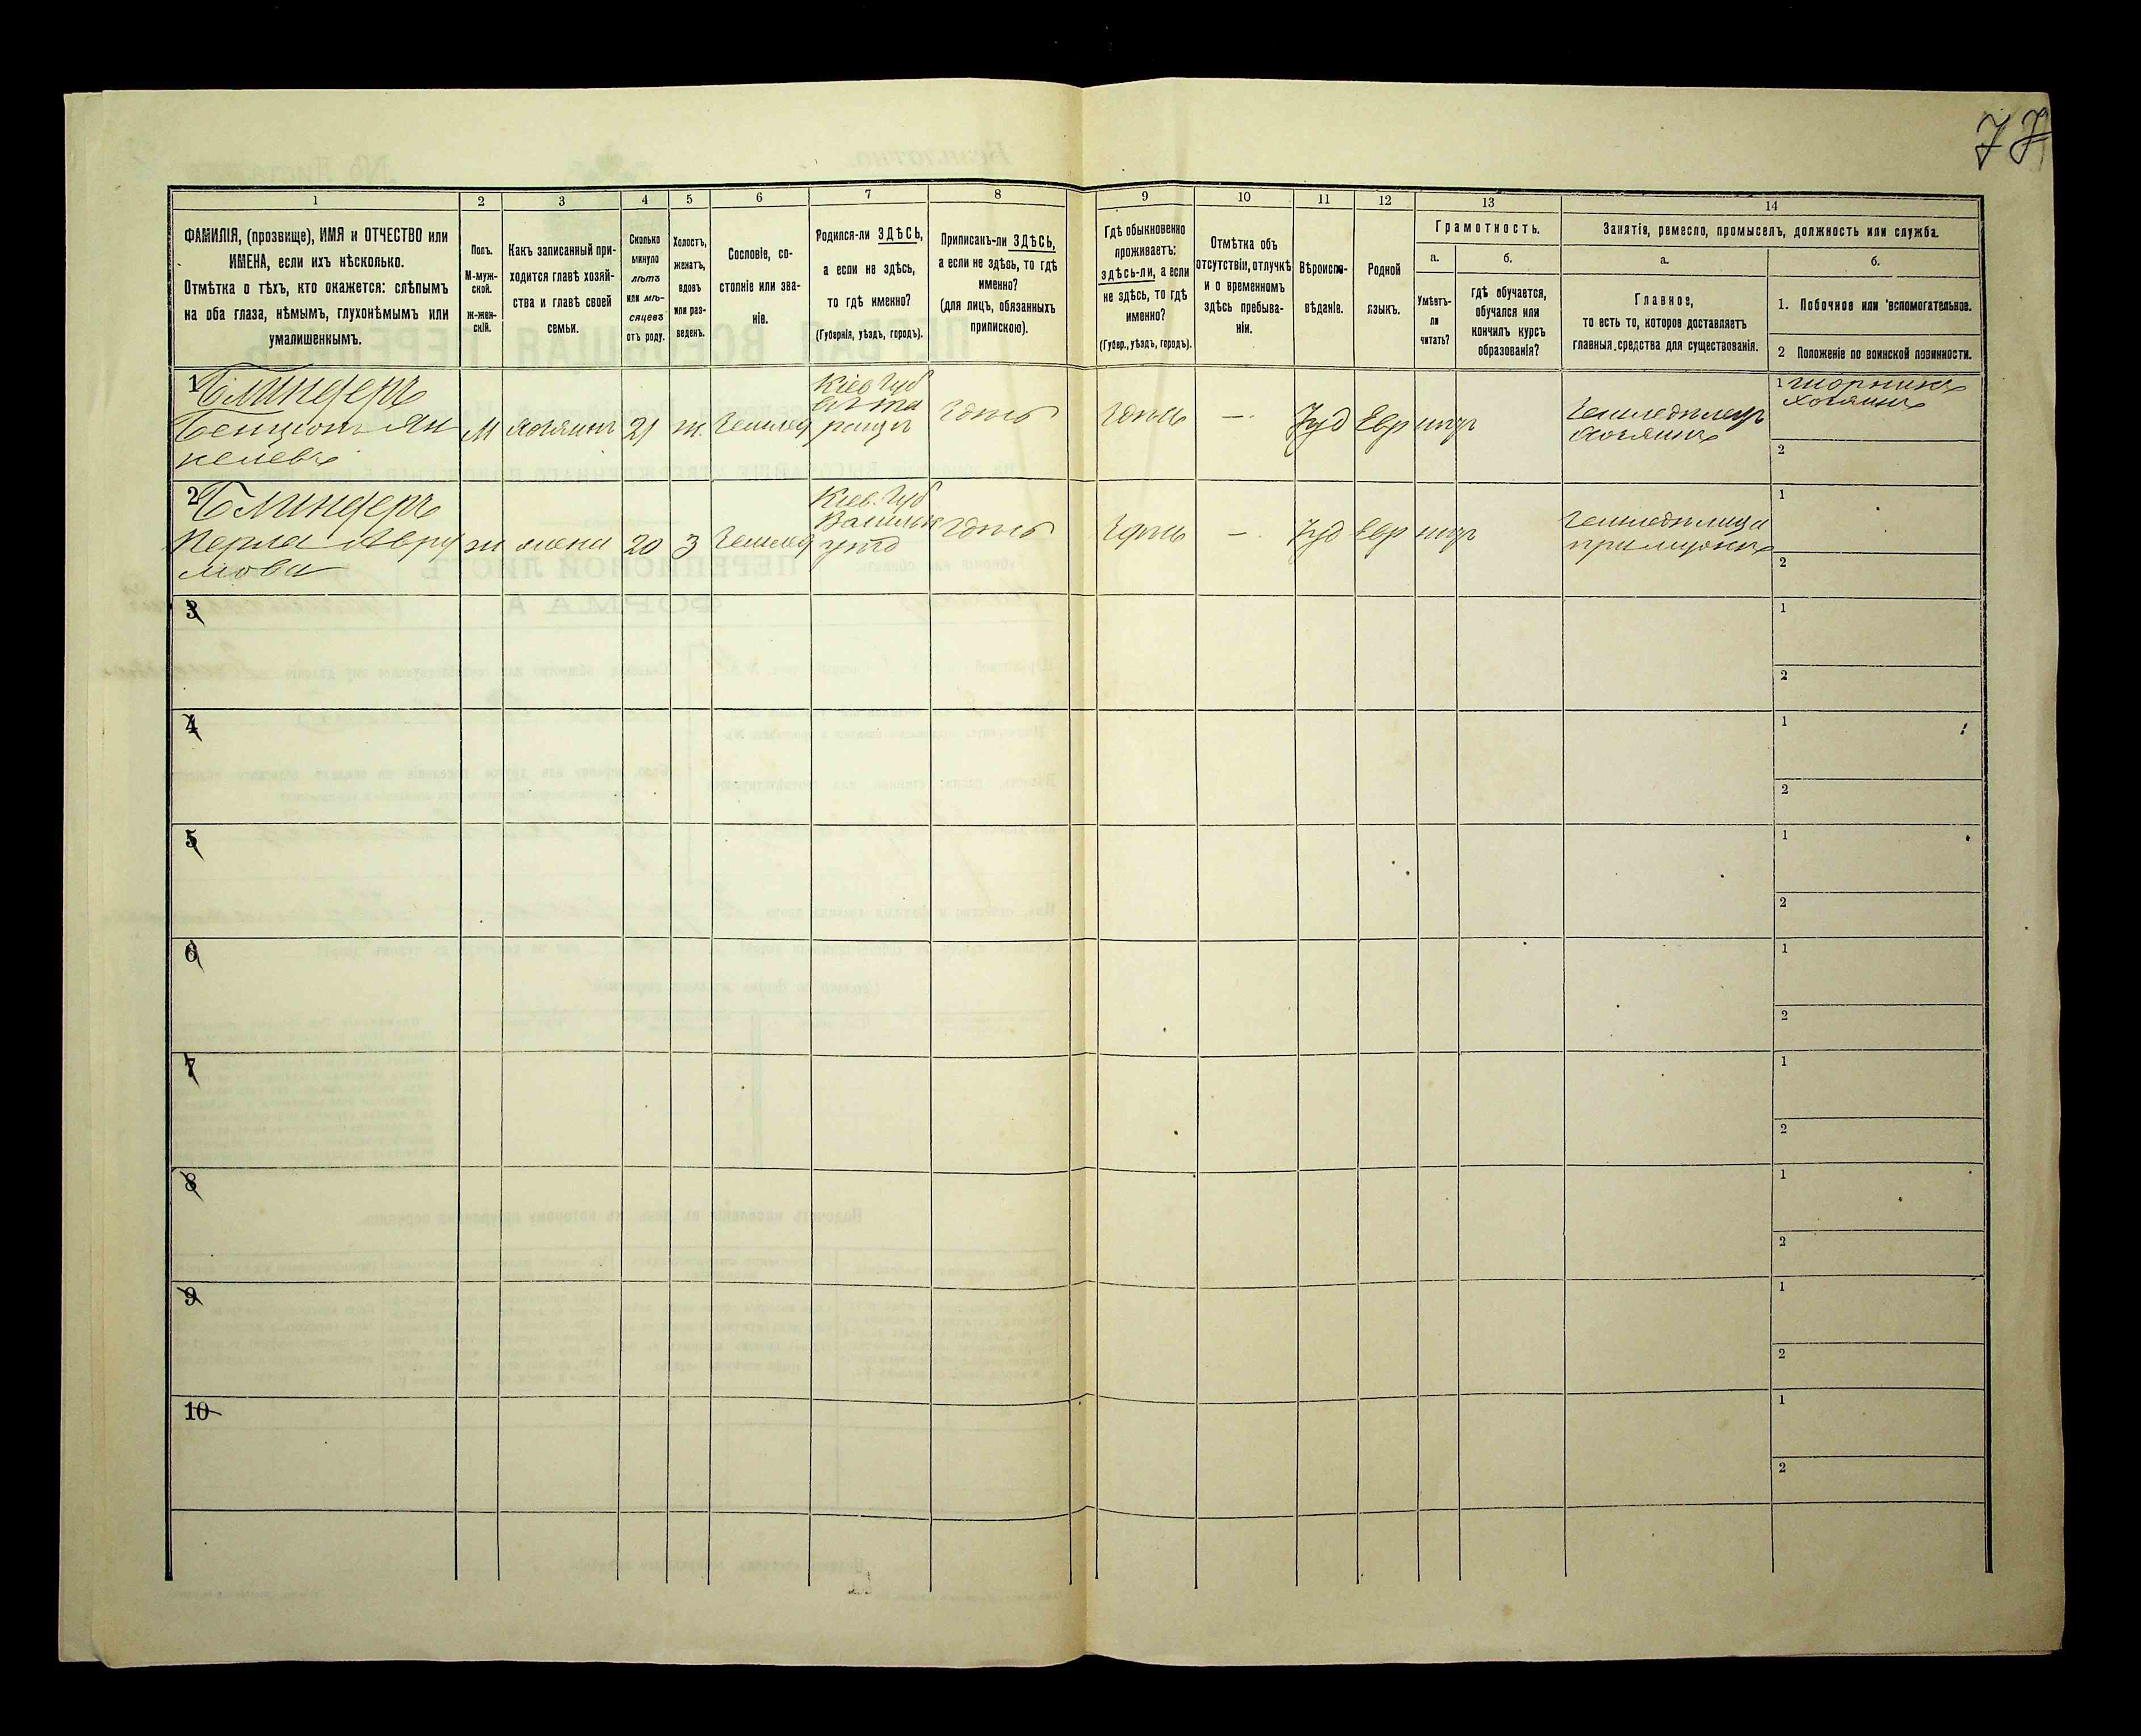 77
1
2
3
4
5
6
7
8
9
10
11
12
13
14
ФАМИЛІЯ, (прозвище), ИМЯ и ОТЧЕСТВО или
ИМЕНА, если ихъ нѣсколько.
Отмѣтка о тѣхъ, кто окажется: слѣпымъ
на оба глаза, нѣмымъ, глухонѣмымъ или
умалишеннымъ.
Полъ.
М-муж-
ской.
ж-жен-
скій.
Какъ записанный при-
ходится главѣ хозяй-
ства и главѣ своей
семьи.
Сколько
минуло
лѣтъ
или мѣ-
сяцевъ
отъ роду.
Холостъ,
женатъ,
вдовъ
или раз-
веденъ.
Сословіе, со-
стояніе или зва-
ніе.
Родился-ли ЗДѢСЬ,
а если не здѣсь,
то гдѣ именно?
(Губернія, уѣздъ, городъ).
Приписанъ-ли ЗДѢСЬ,
а если не здѣсь, то гдѣ
именно?
(для лицъ, обязанныхъ
припискою).
Гдѣ обыкновенно
проживаетъ:
здѣсь-ли, а если
не здѣсь, то гдѣ
именно?
(Губер., уѣздъ, городъ).
Отмѣтка объ
отсутствіи, отлучкѣ
и о временномъ
здѣсь пребыва-
ніи.
Вѣроиспо-
вѣданіе.
Родной
языкъ.
Грамотность.
а.
Умѣетъ-
ли
читать?
б.
гдѣ обучается,
обучался или
кончилъ курсъ
образованія?
Занятія, ремесло, промыселъ, должность или служба.
а.
Главное,
то есть то, которое доставляетъ
главныя средства для существованія.
б.
1. Побочное или вспомогательное.
2 Положеніе по воинской повинности.
1
Блиндеръ
Бенціонъ Ян
келевъ
М
хозяинъ
21
ж.
Землед
Кіев Губ
ращи
здѣсь
здѣсь
—
Іуд
Евр
нѣтъ
Земледѣлецъ
хозяинъ
1
хозяинъ
2
2
Блиндеръ
Перла Авру
мова
ж
жена
20
З
Землед
Кіев. Губ
Васильк
уѣзд
здѣсь
здѣсь
—
Іуд
Евр
нѣтъ
1
2
3
1
2
4
1
2
5
1
2
6
1
2
7
1
2
8
1
2
9
1
2
10
1
2